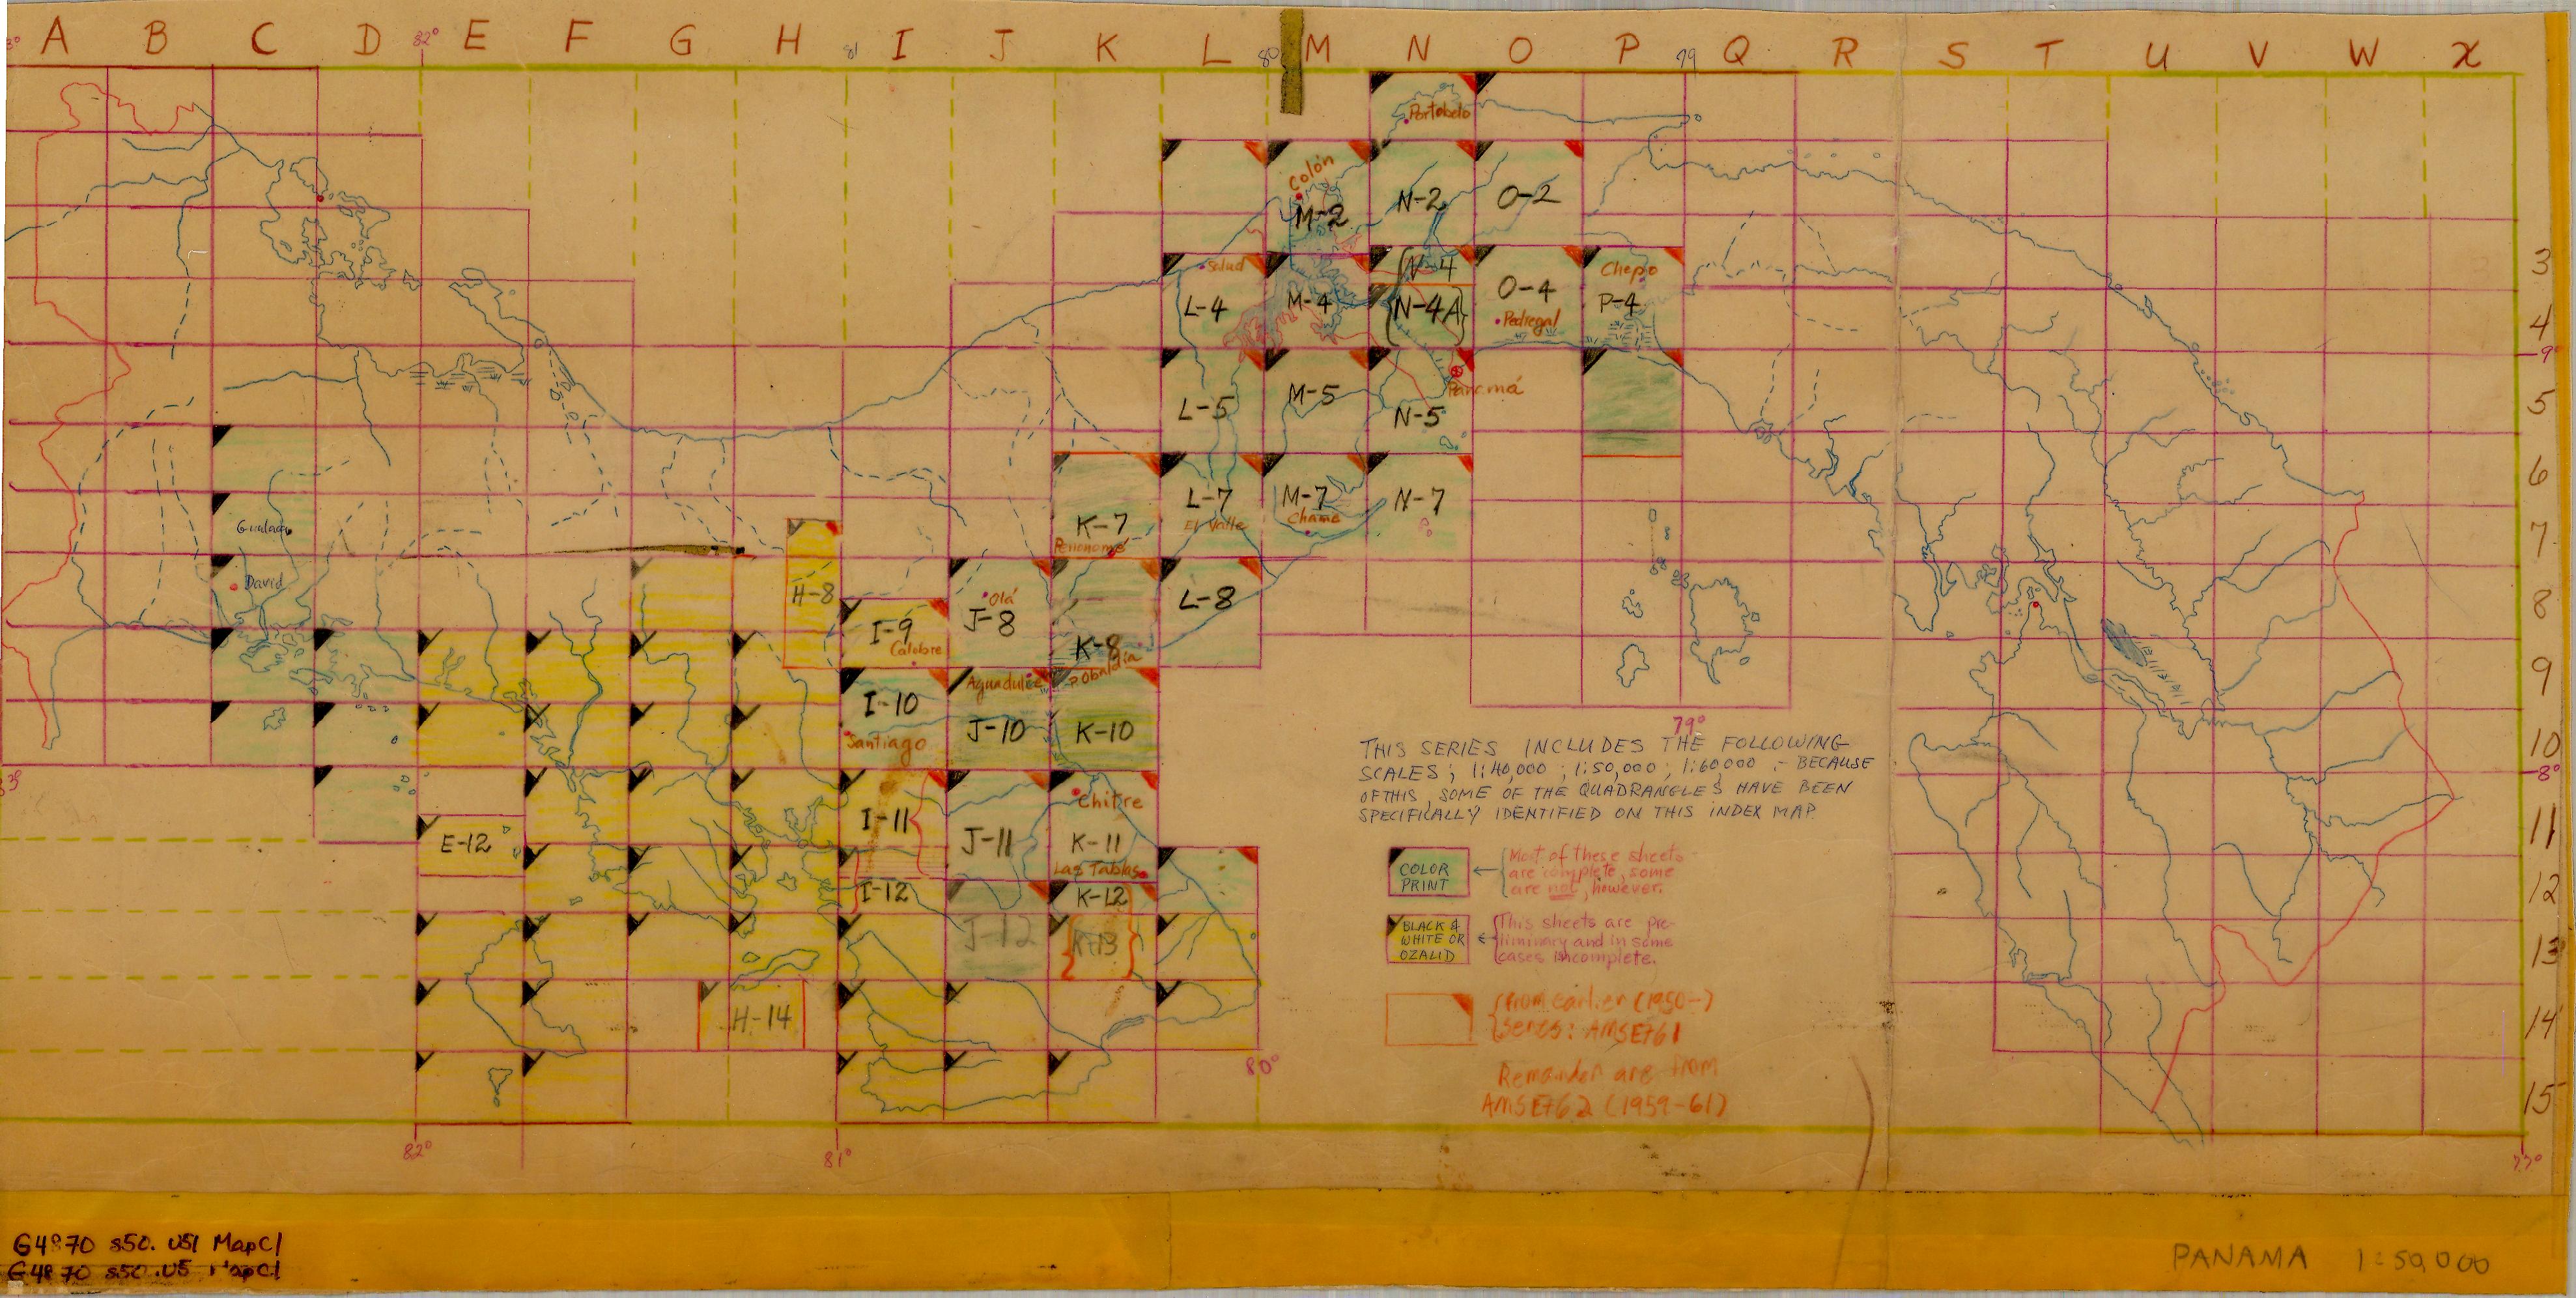 A B C D 82° E F G H 81 I J K L 80 M N O P 79 Q R S T U V W X
Portobelo
Colón
M-2
N-2
O-2
Salud
N-4
Chepo
3
L-4
M-4
N-4A
O-4
P-4
Pedregal
4
9°
Panamá
L-5
M-5
N-5
5
6
L-7
M-7
N-7
El Valle
Chame
K-7
Penonomé
Gualaca
7
David
H-8
Olá
J-8
L-8
8
I-9
Calobre
K-8
P. Obaldía
Aguadulce
9
I-10
J-10
K-10
Santiago
79°
10
8°
THIS SERIES INCLUDES THE FOLLOWING
SCALES; 1:40,000; 1:50,000; 1:60000 - BECAUSE
OF THIS, SOME OF THE QUADRANGLES HAVE BEEN
SPECIFICALLY IDENTIFIED ON THIS INDEX MAP.
Chitre
I-11
J-11
K-11
E-12
Las Tablas
11
COLOR
PRINT
Most of these sheets
are complete, some
are not, however.
I-12
K-12
12
J-12
K-13
BLACK &
WHITE OR
OZALID
This sheets are pre-
liminary and in some
cases incomplete.
13
H-14
From earlier (1950-)
series: AMS E761
14
Remainder are from
AMS E762 (1959-61)
80°
15
82°
81°
77°
G4870 s50. U51 MapCl
G4870 s50 .U5 MapCl
PANAMA 1:50,000